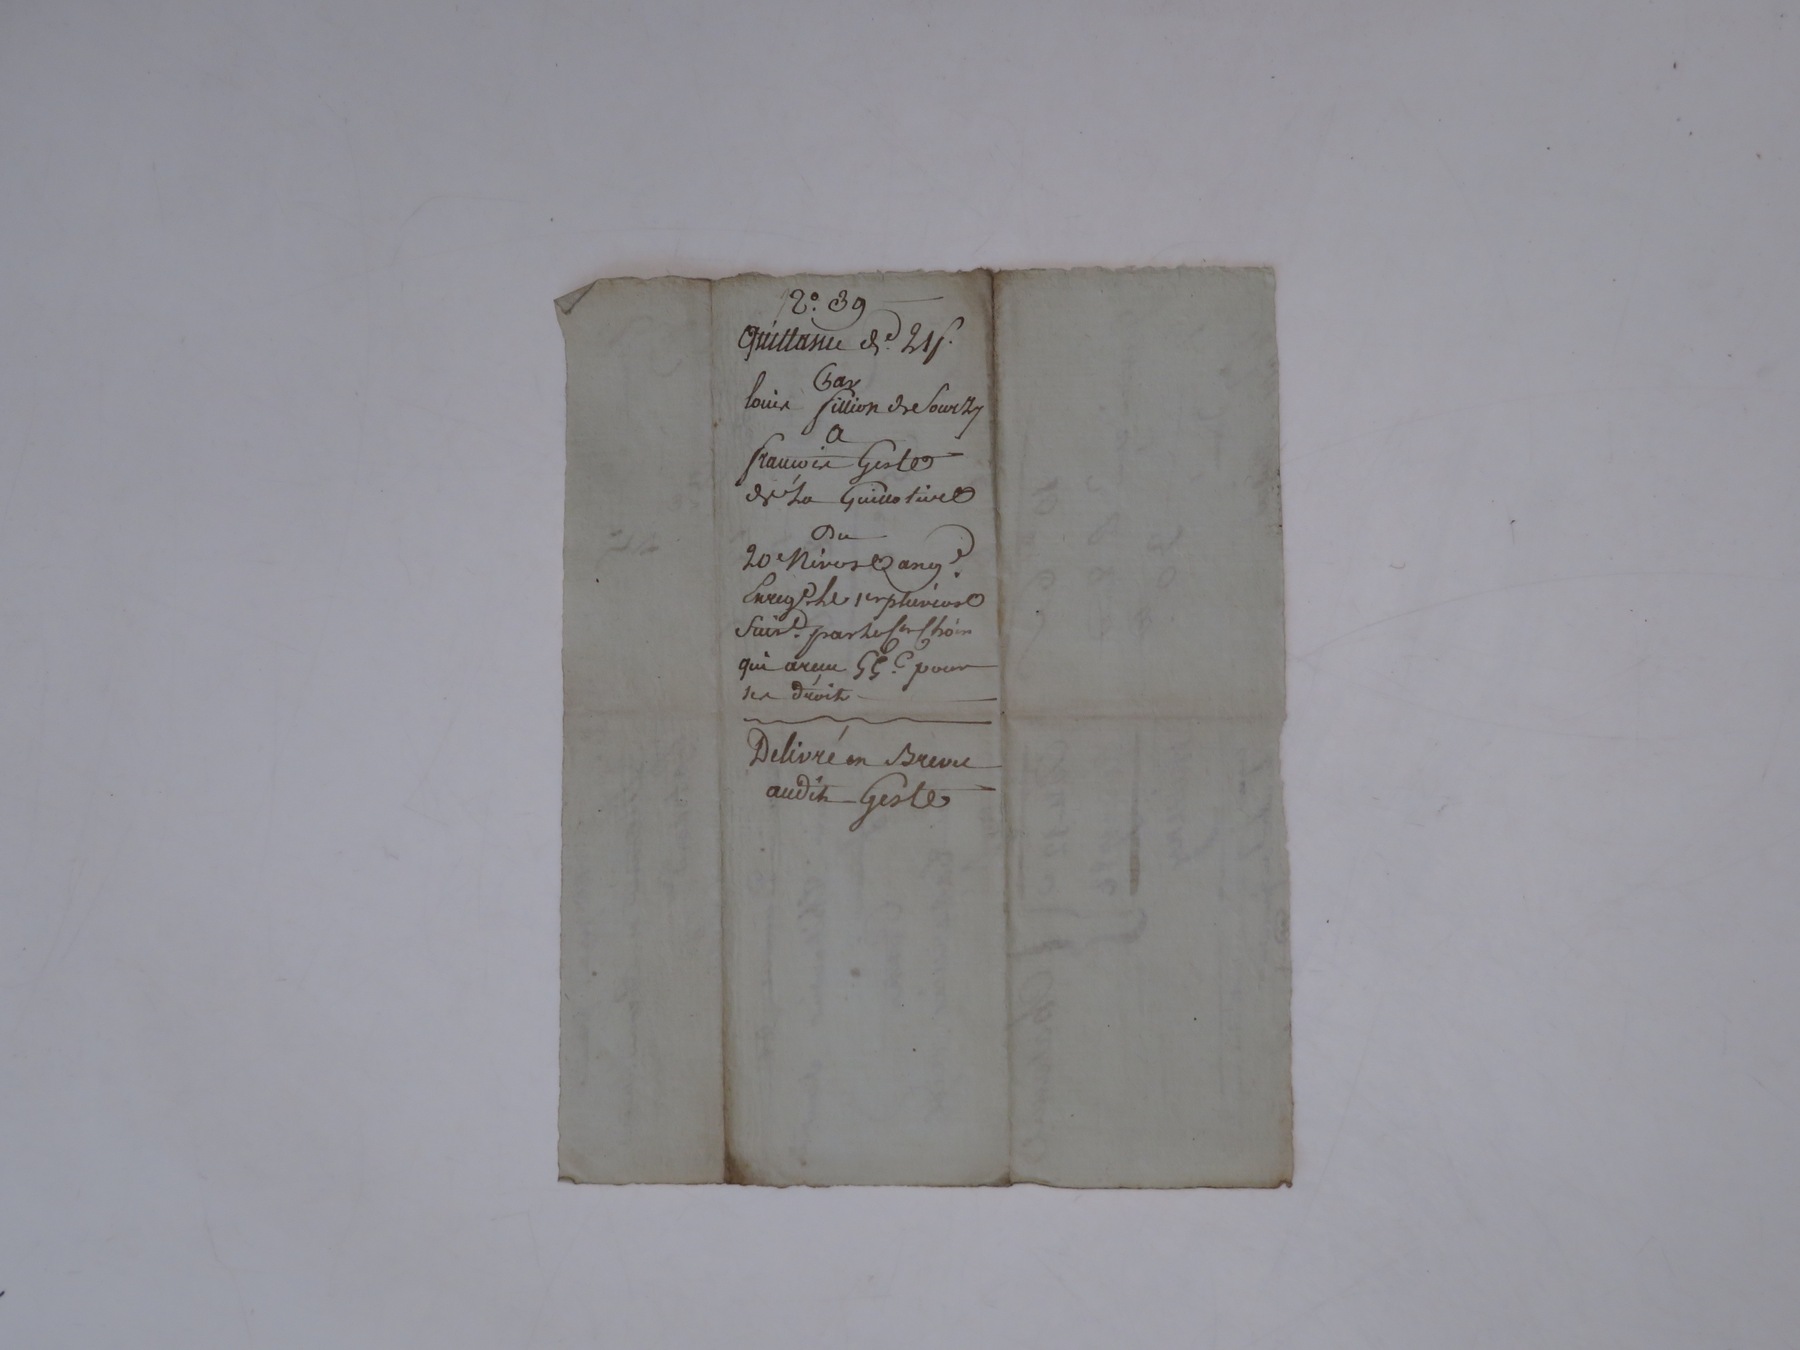 N.o 39
Quittance de 21 f.
Par
louis fillion de Sourzy
a
françois Geste
de La Guillotiere
Du
20 Nivose an 9.e
Enreg.é Le 1er pluviose
Suiv.t par le C.en Choin
qui a recu 55.c pour
ses droits
Delivré en Brevet
audit Geste